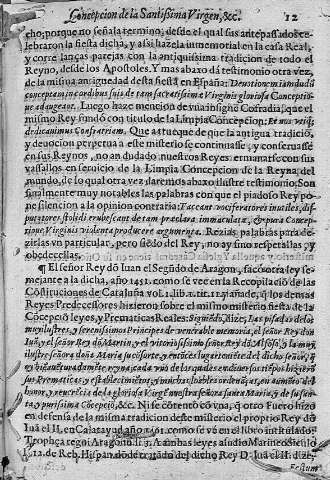 Concepcion de la Santissima Virgen, &c. 12
cho, porque no señala termino, desde el qual sus antepassados ce-
lebraron la fiesta dicha, y assi hazela inmemorial en la casa Real,
y corre lanças parejas con la antiquissima tradicion de todo el
Reyno, desde los Apostoles. Y mas abaxo dà testimonio otra vez,
de la misma antiguedad desta fiesta en España:
concepcionis Virginis gloriosæ Conceptio-
Luego haze mencion de vna insigne Cofradia, que el
mismo Rey fundò con titulo de la Limpia Concepcion: Et ma
dedicauimus Confratriam. Que a si fue de que la antigua tradiciō,
y deuocion perpetua a este misterio se continuasse, y conseruasse
en sus Reynos, no an dudado nuestros Reyes ermanarse con sus
vassallos en seruicio de la Limpia Concepcion de la Reyna del
mundo, de lo qual otra vez daremos abaxo ilustre testimonio. Son
finalmente muy notables las palabras con que el piadoso Rey po-
ne silencio a la opinion contraria: Taceant
putatores stolidi erubescant de tam præclara immaculatæ, & pura Concepti-
one Virginis producere argumenta. Rezias palabras para de-
zirlas vn particular, pero siẽdo del Rey, no ay sino respetallas, y
obedecellas.
¶ El señor Rey dō Iuan el Segūdo de Aragon, sacò otra ley se-
mejante a la dicha, año 1451. como se vee en la Recopilaciō de las
Cōstituciones de Cataluña vol. 1. lib. 1. tit. 1. añade, q̃ los demas
Reyes Predecessores hizieron sobre el mismo misterio fiesta de la
Cōcepciō leyes, y Prematicas Reales: Siguiẽdo, dize, Las pisadas de los
muy ilustres, y serenissimos Principes de venerable memoria, el señor Rey don
Iuā, y el señor Rey dō Martin, y el vitoriosissimo señor Rey dō Alfōso, y la muy
ilustre señora doña Maria su consorte, y entōces lugarteniẽte del dicho señor, q̃
reyna, cada vno de los quales en diuersos tiẽpos hizierō
sus Prematicas y establecimiẽtos, y muchas loables ordenaças, en aumẽto del
honor, y reuerẽcia de la gloriosa Virgẽ nuestra señora santa Maria, y de su san-
ta, y purissima Cōcepciō, &c. Ni se cōtentò cō vna, q̃ otro Fuero hizo
en defensa de la misma tradicion deste misterio el proprio Rey dō
Iuā el II. en Calatayud año 1461. como se vee en el libro intitulado:
Trophæa regni Aragoniæ li. 3. A ambas leyes aludio Marineo Siculo
l. 12. de Reb. Hispan. donde tratado del dicho Rey D. Iuā el II. dize:
Festum